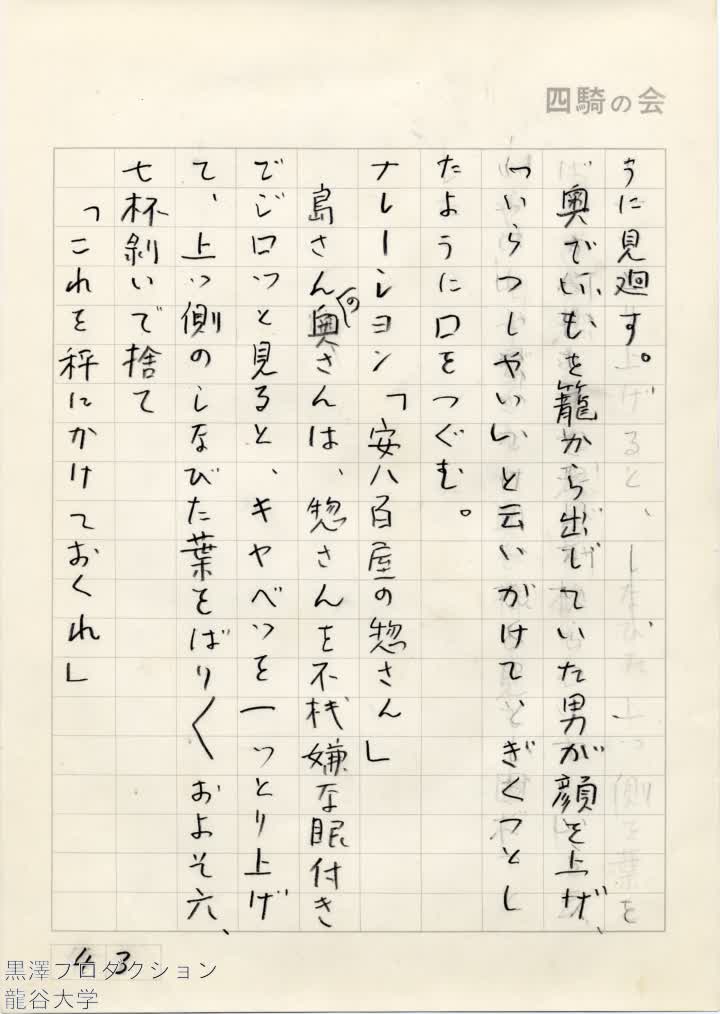 四騎の会
うに見廻す。
奥でいもを籠から出していた男が顔を上げ、
「いらっしゃい」と云いがけて、ぎくっとし
たように口をつぐむ。
ナレーション「安八百屋の惣さん」
島さんの奥さんは、惣さんを不机嫌な眼付き
でジロッと見ると、キャベツを一つとり上げ
て、上っ側のしなびた葉をばり〱およそ六、
七杯剥いで捨て
「これを秤にかけておくれ」
43
黒澤プロダクション
龍谷大学